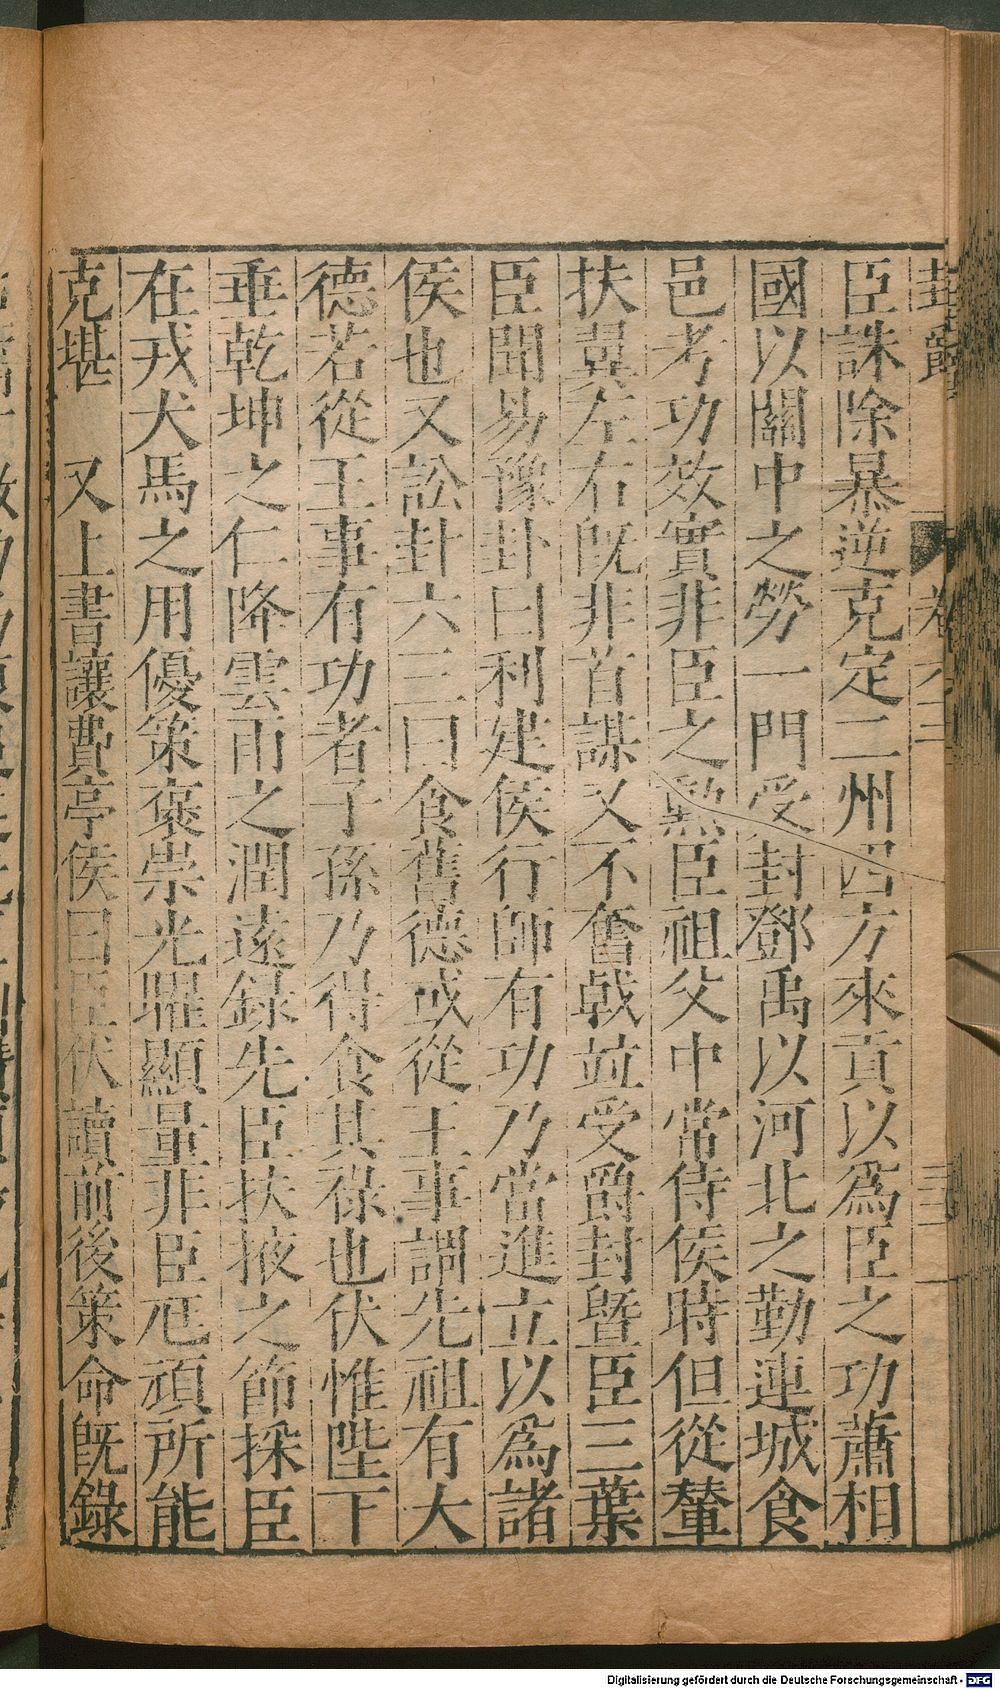 封爵 卷 三
臣誅除暴逆克定二州四方來貢以爲臣之功蕭相
國以關中之勞一門受封鄧禹以河北之勤連城食
邑考功效實非臣之勲臣祖父中常侍侯時但從輦
扶翼左右既非首謀又不奮戟竝受爵封曁臣三葉
臣聞易豫卦曰利建侯行師有功乃當進立以爲諸
侯也又訟卦六三曰食舊德或從王事謂先祖有大
德若從王事有功者子孫乃得食其祿也伏惟陛下
垂乾坤之仁降雲雨之潤遠錄先臣扶掖之節採臣
在戎犬馬之用優策褒崇光曜顯量非臣尫頑所能
克堪 又上書讓費亭侯曰臣伏讀前後策命既錄
Digitalisierung gefördert durch die Deutsche Forschungsgemeinschaft - DFG